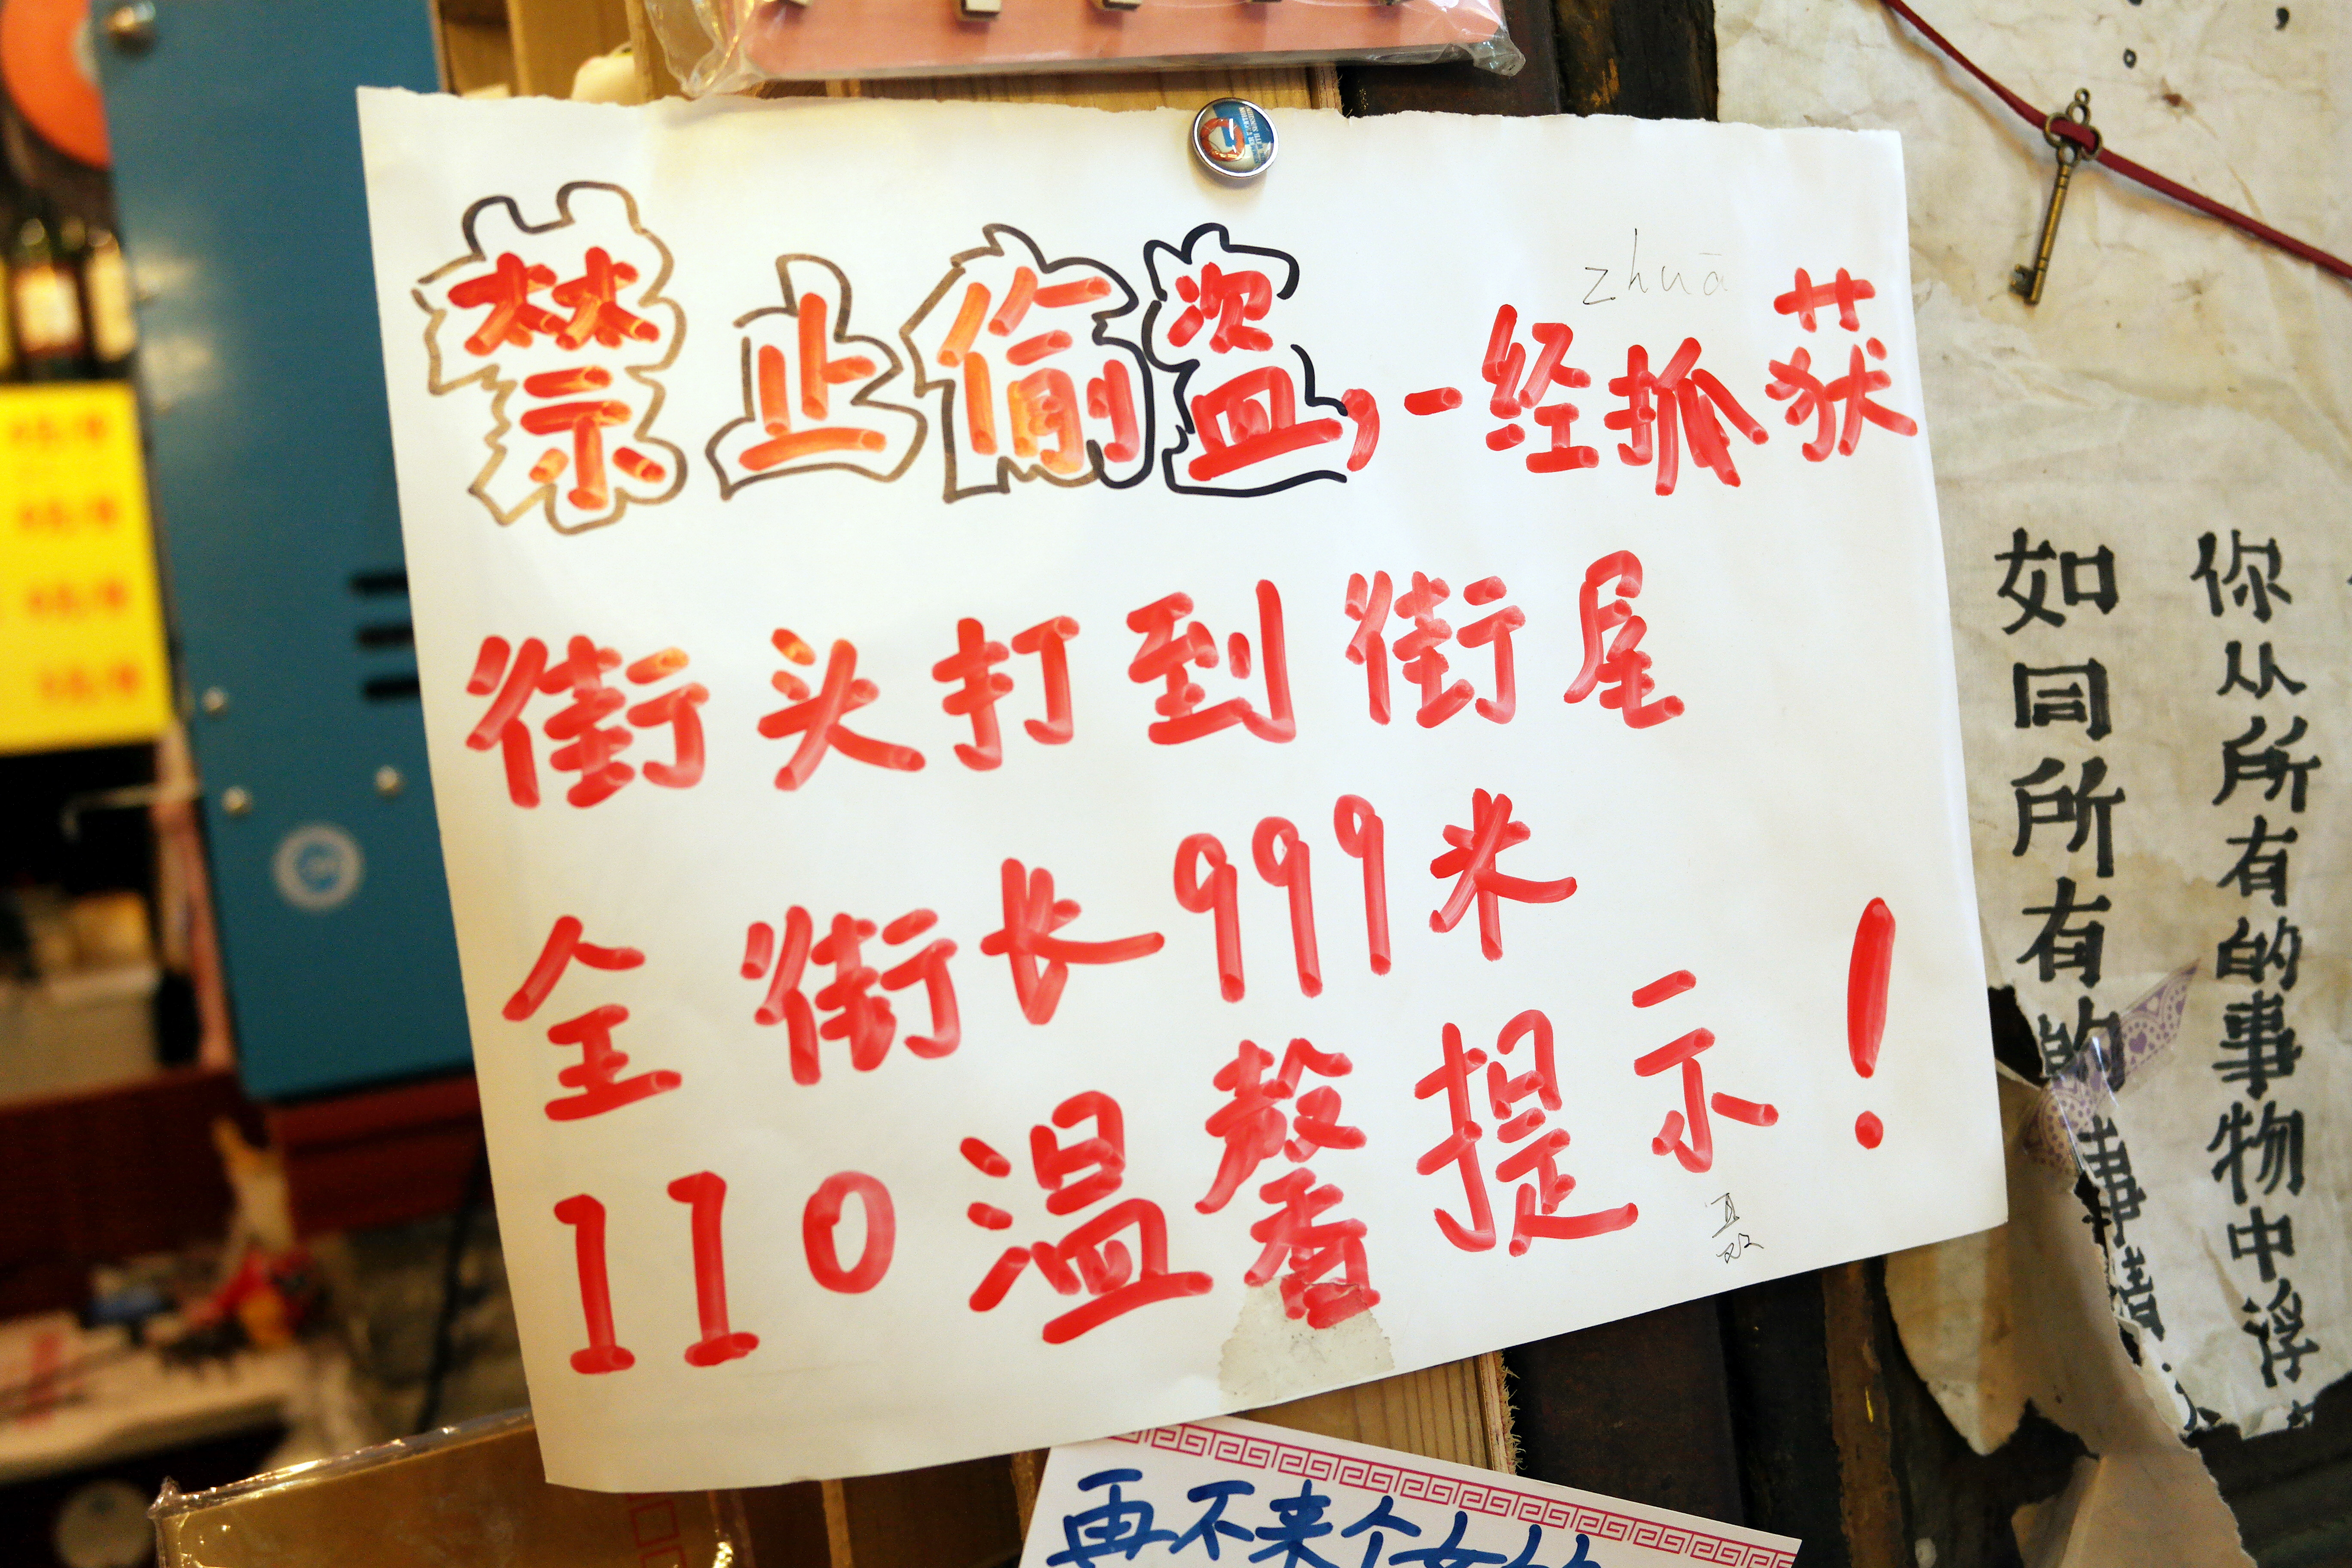 zhuā
禁止偷盗,一经抓获
街头打到街尾
全街长999米
110温馨提示!
你从所有的事物中浮
如同所有的事情
再不来个女的